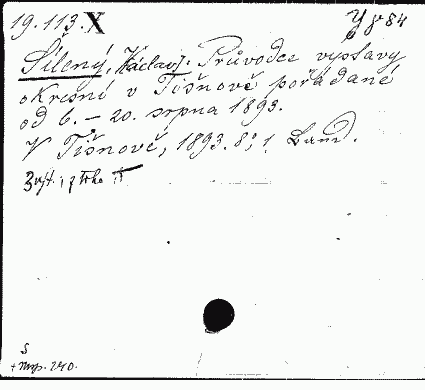 19.113.X Y g 84
Šílený, Václav J. Průvodce výstavy
okresní v Tišnově pořádané
od 6. – 20. srpna 1893.
V Tišnově, 1893. 8°; 1 Band.
S
240.